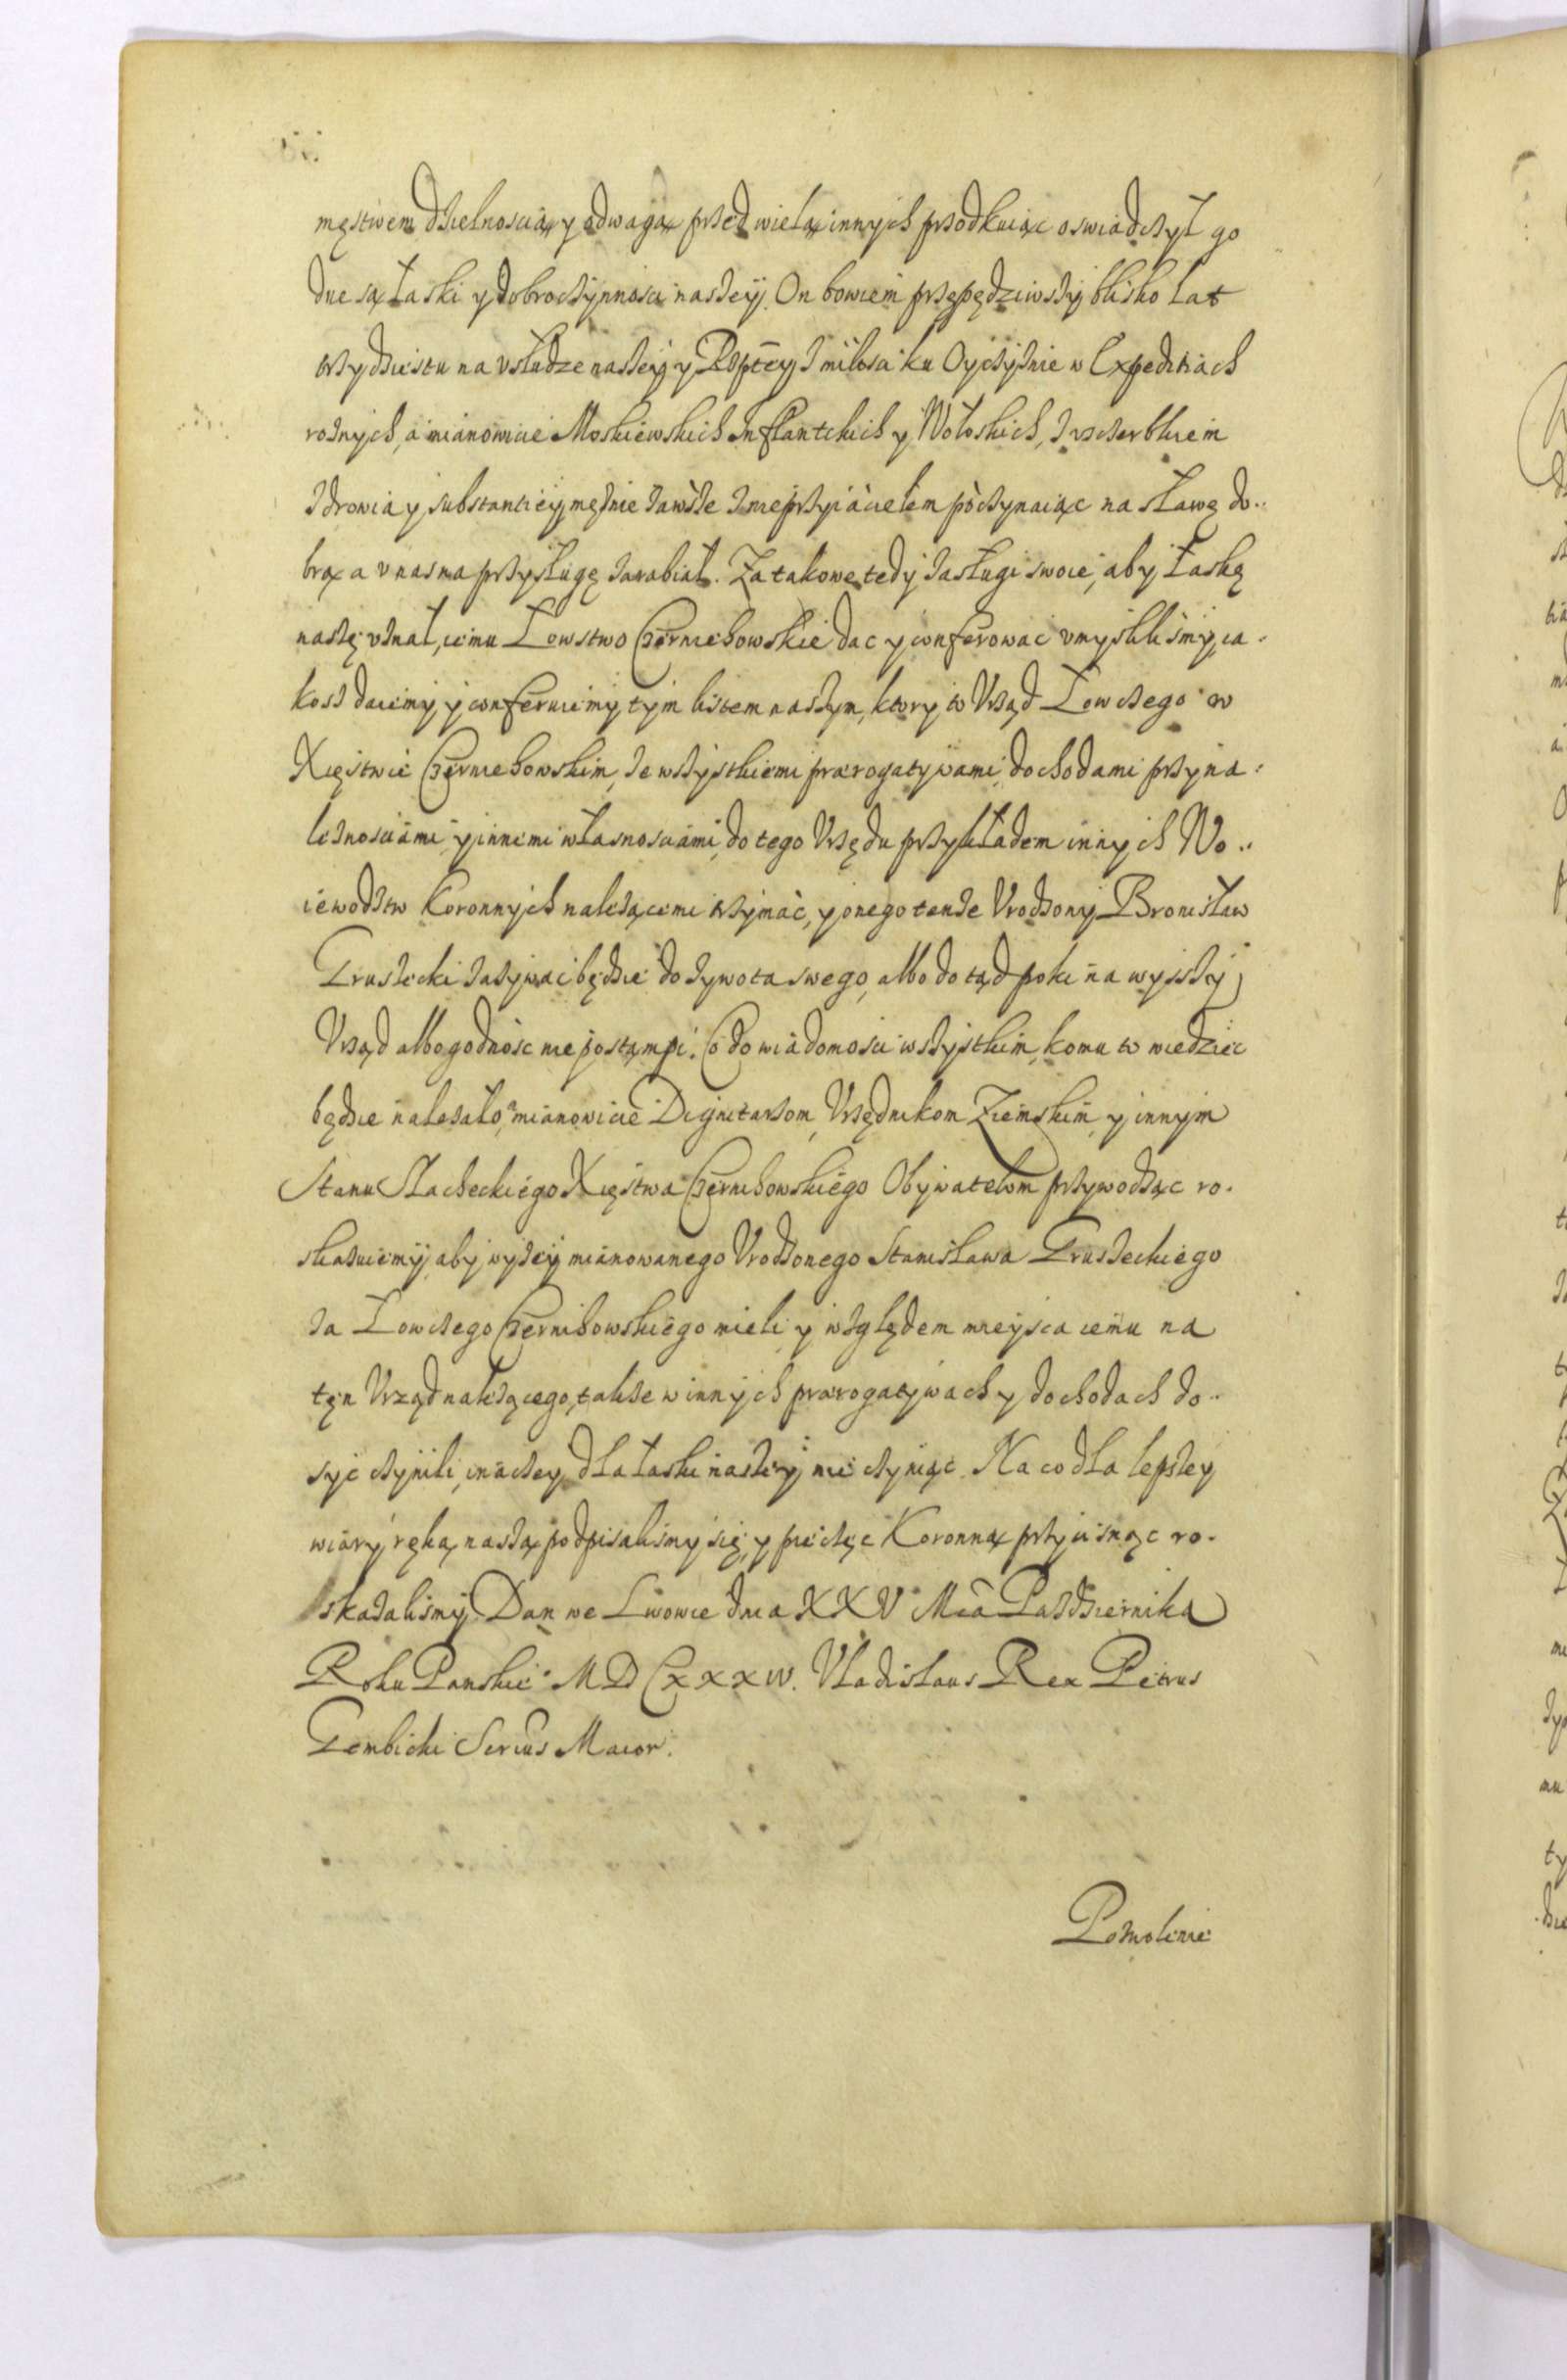 męstwem dzielnoscią y odwagą przed wielą innych przodkuiąc oswiadczył go
dne są łaski y dobroczynnosci naszey. On bowiem przepędziwszy blisko lat
trzydziestu na vsłudze naszey y Rzptey z miłosci ku Oyczyznie w Expeditiach
roznych, a mianowicie Moskiewskich Inflantckich y Wołoskich, z vszczerbkiem
zdrowia y substantiey mężnie zawsze z nieprzyiacielem poczynaiąc na sławę do..
brą a v nas na przysługę zarabiał. Za takowe tedy zasługi swoie, aby łaskę
naszę vznał, iemu Łowstwo Czerniehowskie dac y conferowac vmyslilismy, ia.
kosz daiemy y conferuiemy tym listem naszym, ktory to Vrząd Łowczego w
Xięstwie Czerniehowskim, ze wszystkiemi prærogatywami, dochodami przyna:
leznosciami y innemi własnosciami, do tego Vrzędu przykładem innych Wo..
iewodztw Koronnych nalezącemi trzymac, y onego tenze Vrodzony Bronisław
Gruszecki zazywac będzie do zywota swego, albo do tąd poki na wyiszy
Vrząd albo godnosc nie postąmpi. Co do wiadomosci wszystkim, komu to wiedziec
będzie nalezało, mianowicie Dignitarzom, Vrzędnikom Ziemskim, y innym
Stanu Slacheckiego Xięstwa Czernihowskiego Obywatelom przywodząc ro.
skazuiemy, aby wyzey mianowanego Vrodzonego Stanisława Gruszeckiego
za Łowczego Czernihowskiego mieli y względem mieysca iemu na
ten Vrząd nalezącego, takze w innych prærogatywach y dochodach do..
syc czynili, inaczey dla łaski naszey nie czyniąc. Na co dla lepszey
wiary ręką naszą podpisalismy się, y pieczęc Koronną przycisnąc ro.
skazalismy. Dan we Lwowie dnia XXV Mca Pazdziernika
Roku Panskie° MDCxxxiv. Vladislaus Rex Petrus
Gembicki Secrius Maior.
Pozwolenie